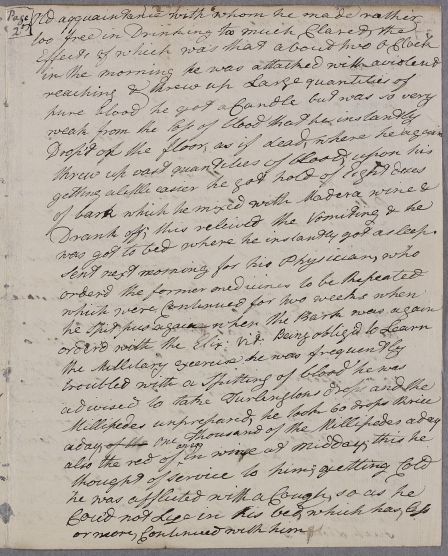 Page
2d
old acquaintance with whom he made rather
too free in Drinking to much Claret the
Effects of which was that about two o Clock
in the morning he was attacked with a violent
reaching & threw up Large quantities of
pure blood he got a Candle but was so very
weak from the loss of blood that he instantly
Drop't of the floor, as if dead, where he again
threw up vast quantities of blood, upon his
getting a little easier he got hold of Eight doses
of bark which he mixed with Madera wine &
Drank off; this relieved the Vomiting & he
was got to bed where he instantly got asleep.
Sent next morning for his Physician, who
orderd the former medicines to be Repeated
which were Continued for two weeks when
he Spit pus again when the Bark was again
orderd with the Elix: Vit: Being obliged to Learn
the Millitary exercise he was frequently
troubled with a Spitting of blood he was
advised to take Turlingtons drops and the
Millipedes unprepared, he took 60 drops thrice
a day, one Thousand of the Millipedes a day
also the red of an egg in wine at midday, this he
thought of service to him; getting Cold
he was afflicted with a Cough, so as he
Coud not Lye in his bed, which has, less
or more, Continued with him